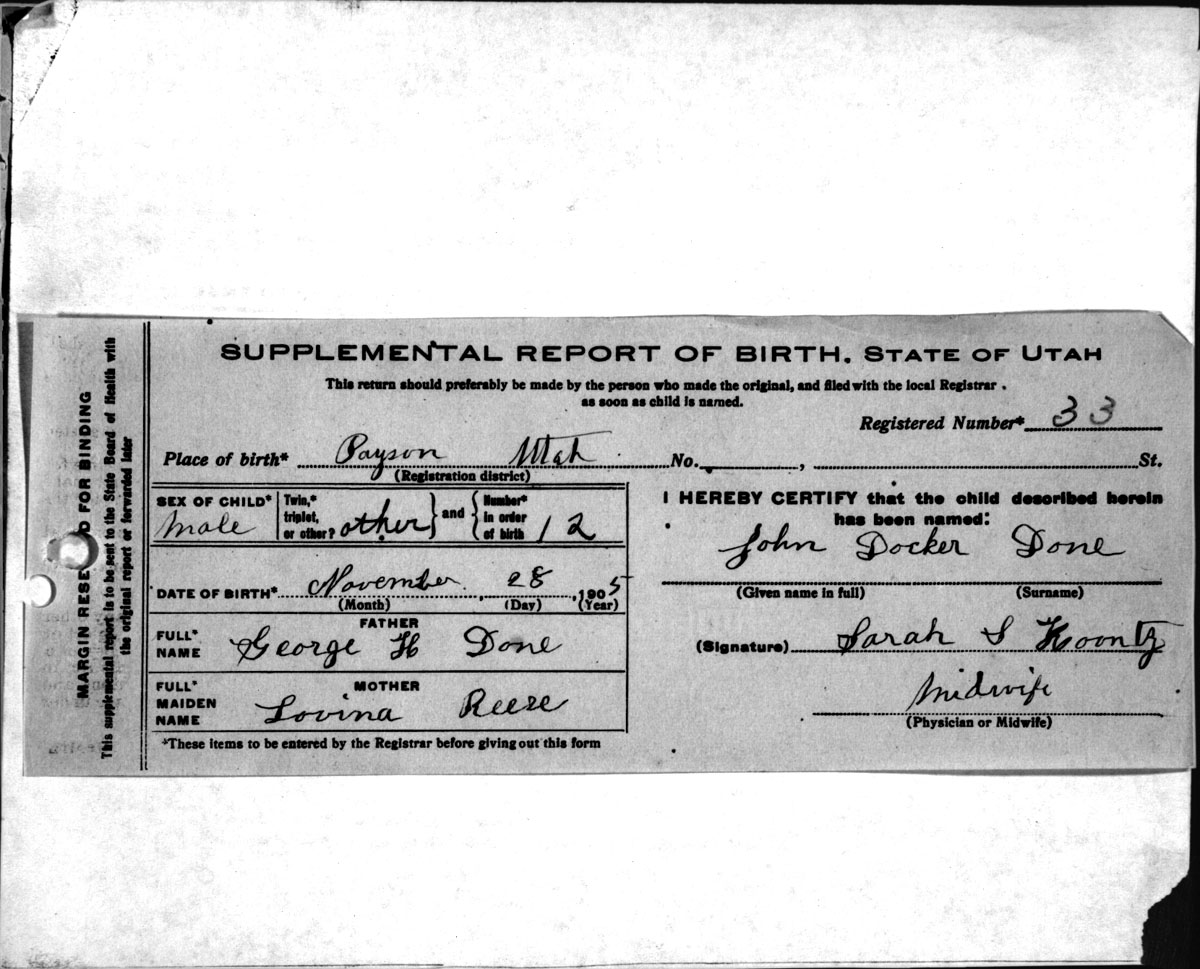 SUPPLEMENTAL REPORT OF BIRTH. STATE OF UTAH
This return should preferably be made by the person who made the original, and filed with the local Registrar .
as soon as child is named.
Registered Number* 33
Place of birth* Payson Utah No. , St.
(Registration district)
SEX OF CHILD* Male
Twin,* triplet, or other? other } and { Number* in order of birth 12
DATE OF BIRTH* November 28 , 1905
(Month) (Day) (Year)
FATHER
FULL* NAME George H Done
MOTHER
FULL* MAIDEN NAME Lovina Reese
*These items to be entered by the Registrar before giving out this form
I HEREBY CERTIFY that the child described herein
has been named:
John Docker Done
(Given name in full) (Surname)
(Signature) Sarah S Koontz
Midwife
(Physician or Midwife)
MARGIN RESE D FOR BINDING
This supplemental report is to be sent to the State Board of Health with
the original report or forwarded later